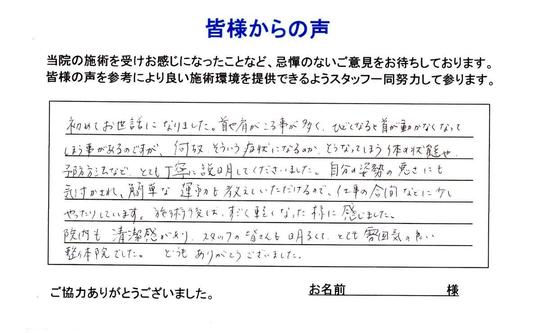 皆様からの声
当院の施術を受けお感じになったことなど、忌憚のないご意見をお待ちしております。
皆様の声を参考により良い施術環境を提供できるようスタッフ一同努力して参ります。
初めてお世話になりました。首や肩がこる事が多く、ひどくなると首が動かなくなって
しまう事があるのですが、何故、そういう症状になるのか、どうなってしまう体の状態や
予防方法など、とても丁寧に説明してくださいました。自分の姿勢の悪さにも
気付かされ、簡単な運動も教えていただけるので、仕事の合間などに少し
やったりしています。施術後は、すごく軽くなった様に感じました。
院内も清潔感があり、スタッフの皆さんも明るくて、とても雰囲気の良い
整体院でした。どうもありがとうございました。
ご協力ありがとうございました。
お名前 様